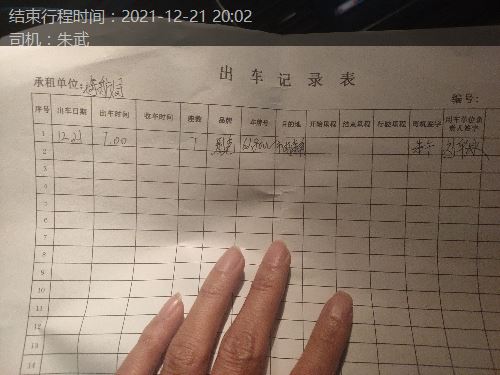 结束行程时间：2021-12-21 20:02
司机：朱武
出车记录表
承租单位：
编号：
序号 出车日期 出车时间 收车时间 座数 品牌 车牌号 目的地 开始里程 结束里程 行驶里程 司机签字 用车单位负责人签字
1 12.21 7.00 7
2
3
4
5
6
7
8
9
10
11
12
13
14